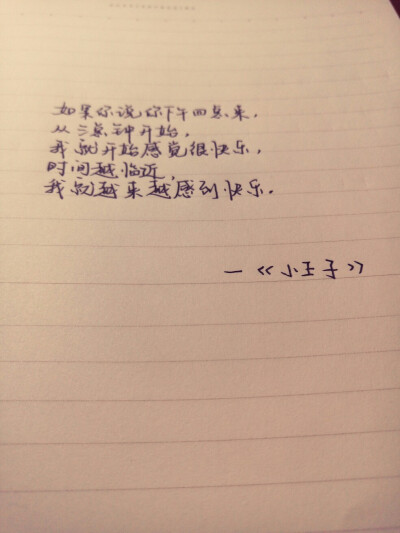 如果你说你下午四点来，
从三点钟开始，
我就开始感觉很快乐，
时间越临近，
我就越来越感到快乐。
—《小王子》